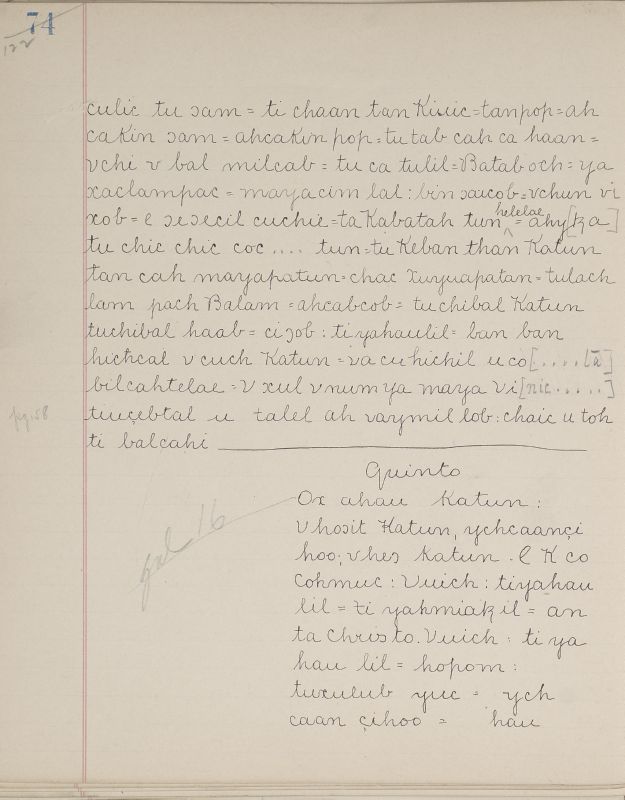 74
122
culic tu ɔam = ti chaan tan Kiuic = tanpop = ah
cakin ɔam = ahcakin pop = tu tab cah ca haan =
vchi v bal milcab = tu ca tulil = Batab och = ya
xaclampac = mayacim lal : bin ɔaicob = vchun vi
xob = e ɔeɔecil cuchie = ta Kabatah tun helelae = ahy[ka]
tu chic chic coc .... tun = tu Keban than Katun
tan cah mayapatun = chac xuyuapatan = tulach
lam pach Balam = ahcabcob = tu chibal Katun
tuchibal haab = ciɔob : ti yahaulil = ban ban
hichcal v cuch Katun = va cu hichil u co[....la]
bilcahtelae = V xul v num ya maya vi[nic.....]
tiuçebtal u talel ah varymil lob : chaic u toh
ti balcahi
pg. 58
Quinto
Ox ahau Katun :
V hoɔit Katun, ychcaançi
hoo; vheɔ Katun . E K co
cohmuc : Vuich : tiyahau
lil = ti yahmiak il = an
ta christo. Vuich : ti ya
hau lil = hopom :
tuxulub yuc = ych
caan çihoo = hau
gal 16